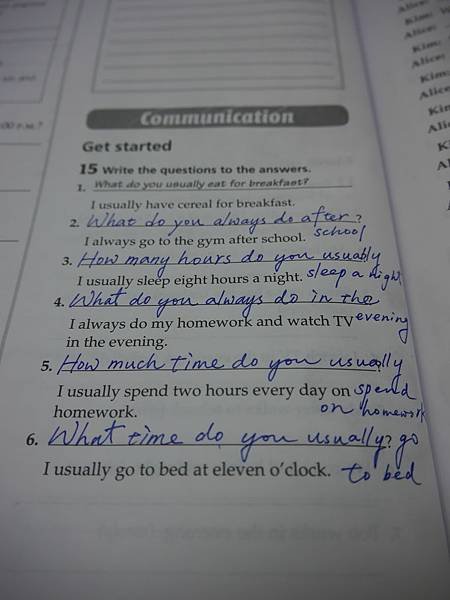 Communication
Get started
15 Write the questions to the answers.
1. What do you usually eat for breakfast?
I usually have cereal for breakfast.
2. What do you always do after ?
school
I always go to the gym after school.
3. How many hours do you usually
sleep a night
I usually sleep eight hours a night.
4. What do you always do in the
evening
I always do my homework and watch TV
in the evening.
5. How much time do you usually
spend
I usually spend two hours every day on
on homework
homework.
6. What time do you usually? go
to bed
I usually go to bed at eleven o'clock.
Alice:
Kim:
Alice:
Kim:
Alice:
Kim:
Alice